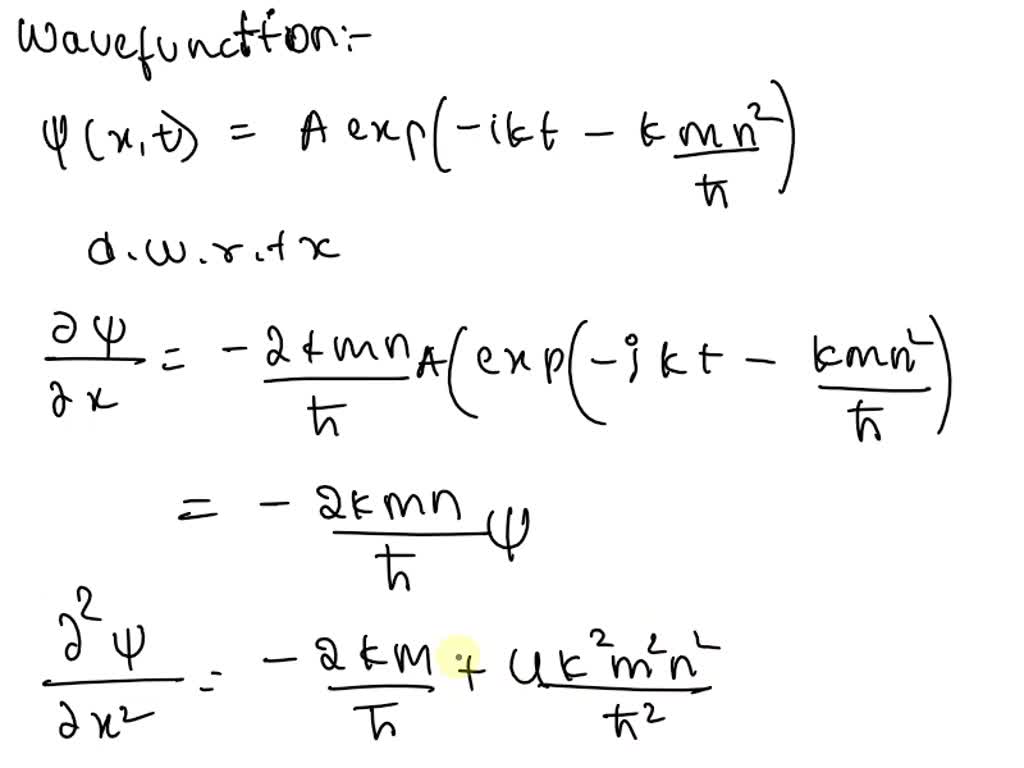 Wavefunction:-
ψ(x,t) = A exp(-ikt - k mn²/ħ)
d.w.r.t x
∂ψ/∂x = - 2kmn/ħ A(exp(-ikt - kmn²/ħ)
= - 2kmn/ħ ψ
∂²ψ/∂x² = - 2km/ħ + 4k²m²n²/ħ²